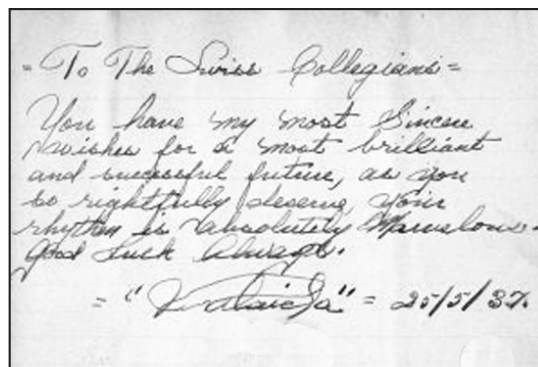 = To The Swiss Collegians =
You have my most Sincere
wishes for a most brilliant
and successful future, as you
so rightfully deserve, your
rhythm is absolutely Marvelous.
Good Luck Always.
= " " = 25/5/37.